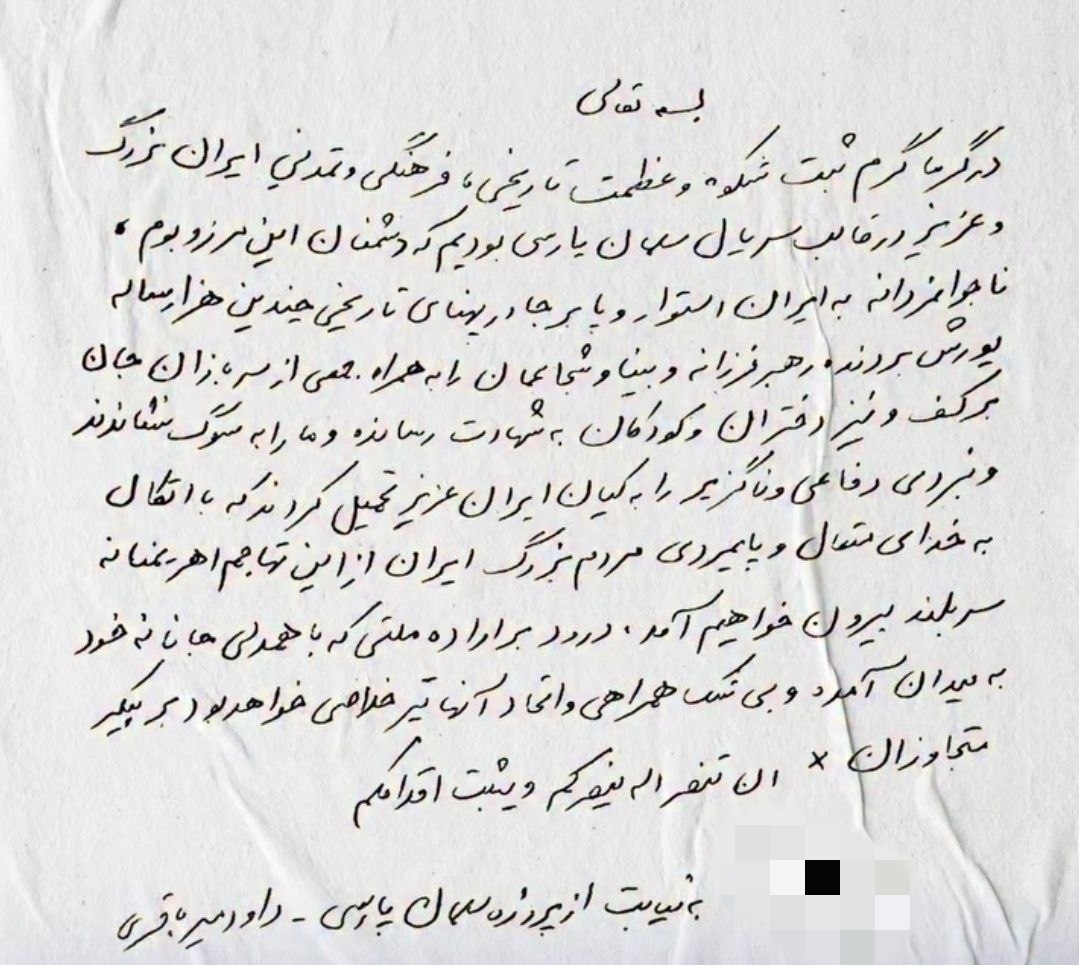 بسمه تعالی
در گرماگرم ثبت شکوه و عظمت تاریخی، فرهنگی و تمدنی ایران بزرگ
و عزیز در قالب سریال سلمان پارسی بودیم که دشمنان این مرز و بوم،
ناجوانمردانه به ایران استوار و پابرجا در پهنای تاریخی چندین هزارساله
یورش بردند، رهبر فرزانه و بینا و شجاعمان را به همراه جمعی از سربازان جان
بر کف و نیز دختران و کودکان به شهادت رسانده و ما را به سوگ نشاندند
و نبردی دفاعی و ناگزیر را به کیان ایران عزیز تحمیل کردند که با اتکال
به خدای متعال و پایمردی مردم بزرگ ایران از این تهاجم اهریمنانه
سربلند بیرون خواهیم آمد. درود بر اراده ملتی که با همدلی جانانه خود
به میدان آمده و بی شک همراهی و اتحاد آنها تیر خلاصی خواهد بود بر پیکر
متجاوزان * ان تنصر اله ینصرکم و یثبت اقدامکم
به نیابت از پروژه سلمان پارسی - داود میرباقری